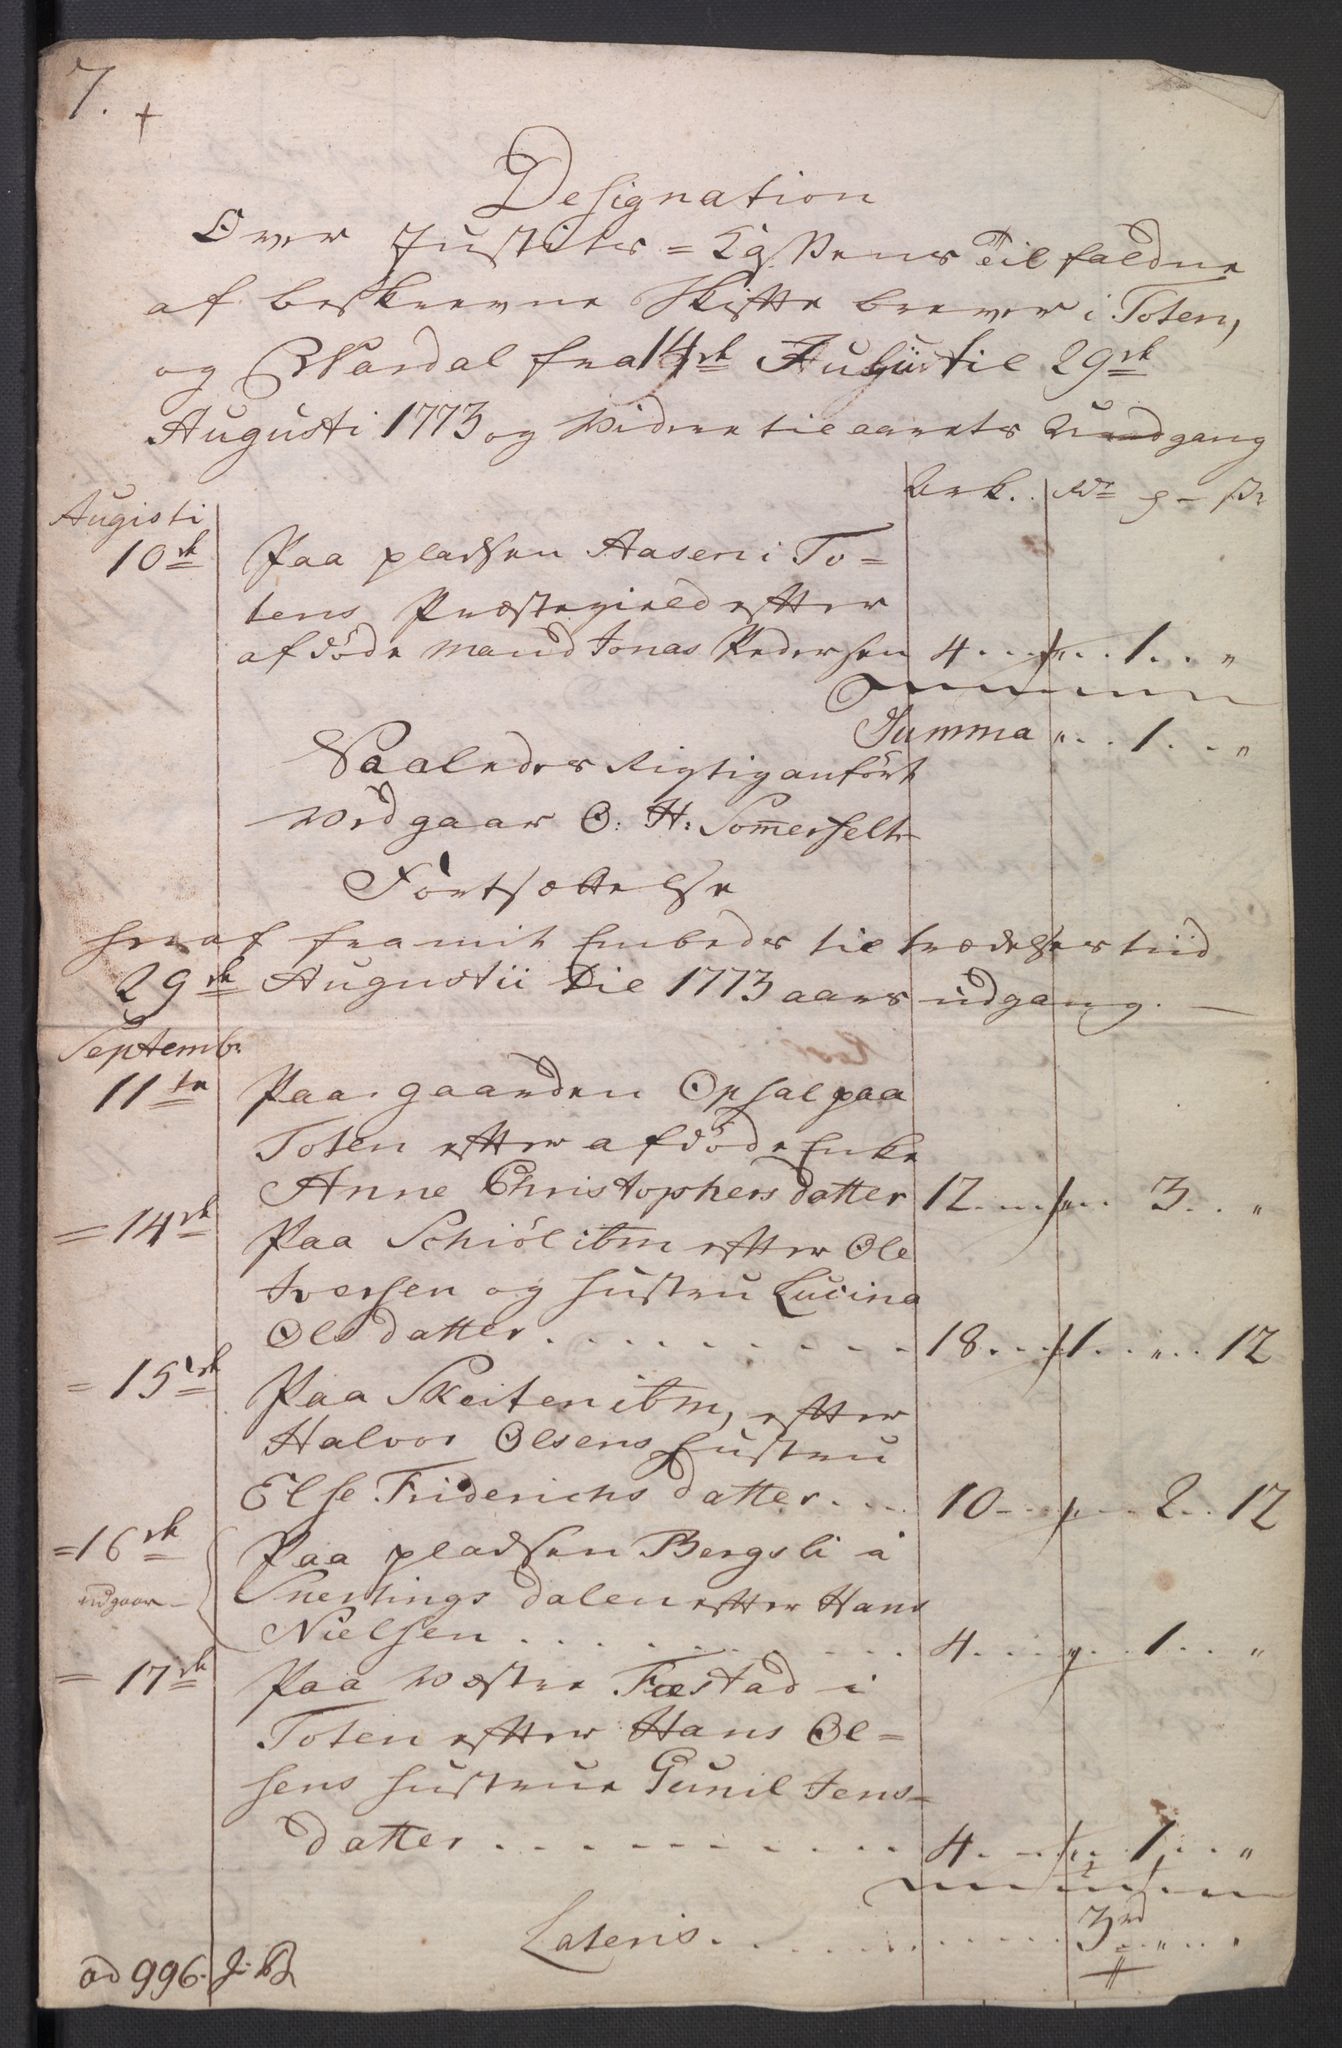 7.
Designation
Over Justits=Cassens Tilfaldne
af beskrevne Skifte brever i Toten,
og Wardal fra 14de Augusti til 29de
Augusti 1773 og videre til aarets Uudgang
Ark. Rdr ß
Augisti
10de Paa pladsen Aasen i To=
tens Præstegield efter
afdöde Mand Jonas Pedersen 4 . . . „ . . 1 . . „
Summa „ . . 1 . . „
Saaledes Rigtig anfört
vedgaar O: H: Sommerfelt
Fortsættelse
heraf fra mit Embeds tiltrædelses tiid
29de Augustii til 1773 aars udgang.
Septemb:
11te Paa gaarden Opsal paa
Toten efter afdöde Enke
Anne Christophersdatter 12 . . . „ . . 3 . . „
= 14de Paa Schiöl ibm efter Ole
Iversen og hustru Lucina
Olsdatter . . . . . . . . . 18 . . . 1 . . „ . . 12
= 15de Paa Skeiten ibm, efter
Halvor Olsens hustru
Else Friderichsdatter . . . 10 . . . „ . . 2 . . 12
= 16de Paa pladsen Bergsli i
udgaar Snertingsdalen efter Hans
Nielsen . . . . . . . . . 4 . . . „ . . 1 . . „
= 17de Paa væstre Fæstad i
Toten efter Hans Ol=
sens hustrue Gunil Jens=
datter . . . . . . . . . 4 . . . „ . . 1 . . „
Lateris . . . . . . . . . 3rd „ . . „
ad 996.